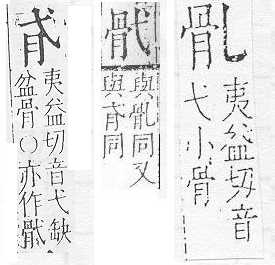 夷益切音
弋小骨
骮
與同又
與同
夷益切音弋缺
盆骨〇亦作骮